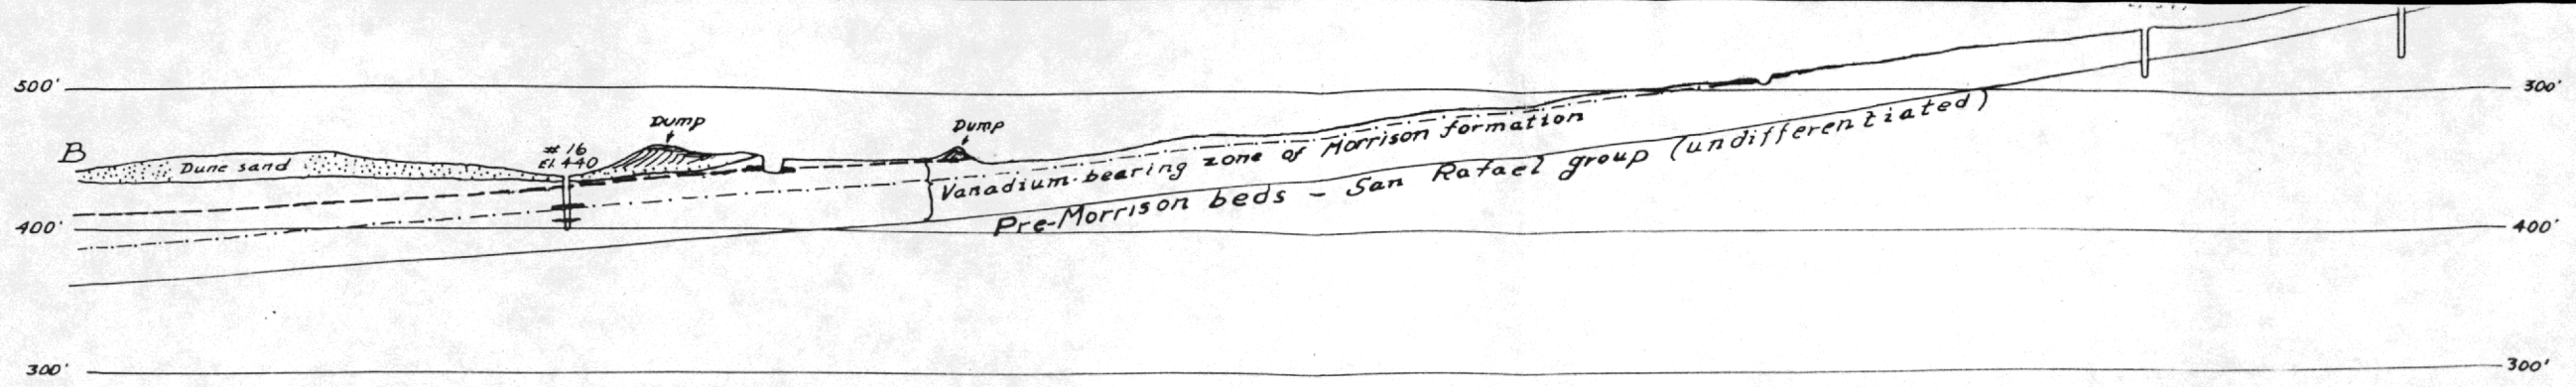 500'
500'
Dump
Dump
B
# 16
El. 440
Dune sand
Vanadium-bearing zone of Morrison formation
Pre-Morrison beds - San Rafael group (undifferentiated)
400'
400'
300'
300'